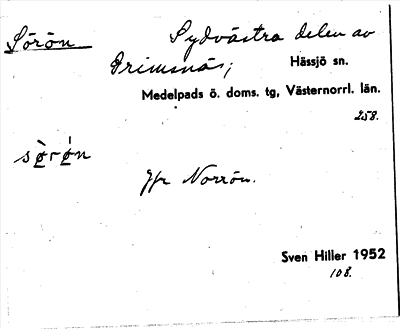 Sörön Sydvästra delen av
Grimsnäs; Hässjö sn.
Medelpads ö. doms. tg, Västernorrl. län.
258.
sø̀rǿn
Jfr Norrön.
Sven Hiller 1952
108.